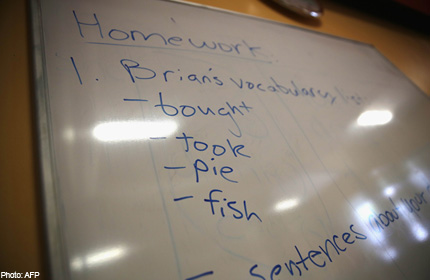 Homework
1. Brian's vocabulary list
- bought
- took
- pie
- fish
- sentences about your
Photo: AFP